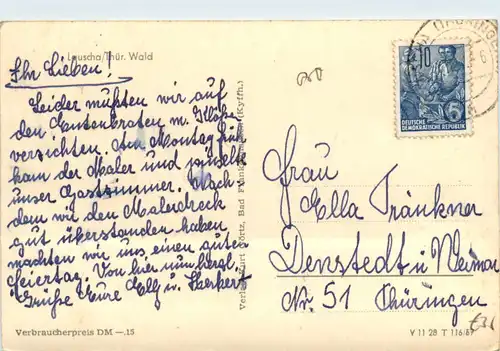 Lauscha/Thür. Wald
Ihr Lieben!
Leider mußten wir auf
den Entenbraten m. Klößen
verzichten. Am Montag früh
kam der Maler und pinselte
unser Gastzimmer. Nach-
dem wir den Malerdreck
gut überstanden haben,
machten wir uns einen guten
Feiertag. Von hier nun herzl.
Grüße Eure Elly u. Herbert
Verbraucherpreis DM —.15
DEUTSCHE
DEMOKRATISCHE REPUBLIK
Frau
Ella Tränkner
Denstedt ü/ Weimar
Nr. 51 Thüringen
V 11 28 T 116/67